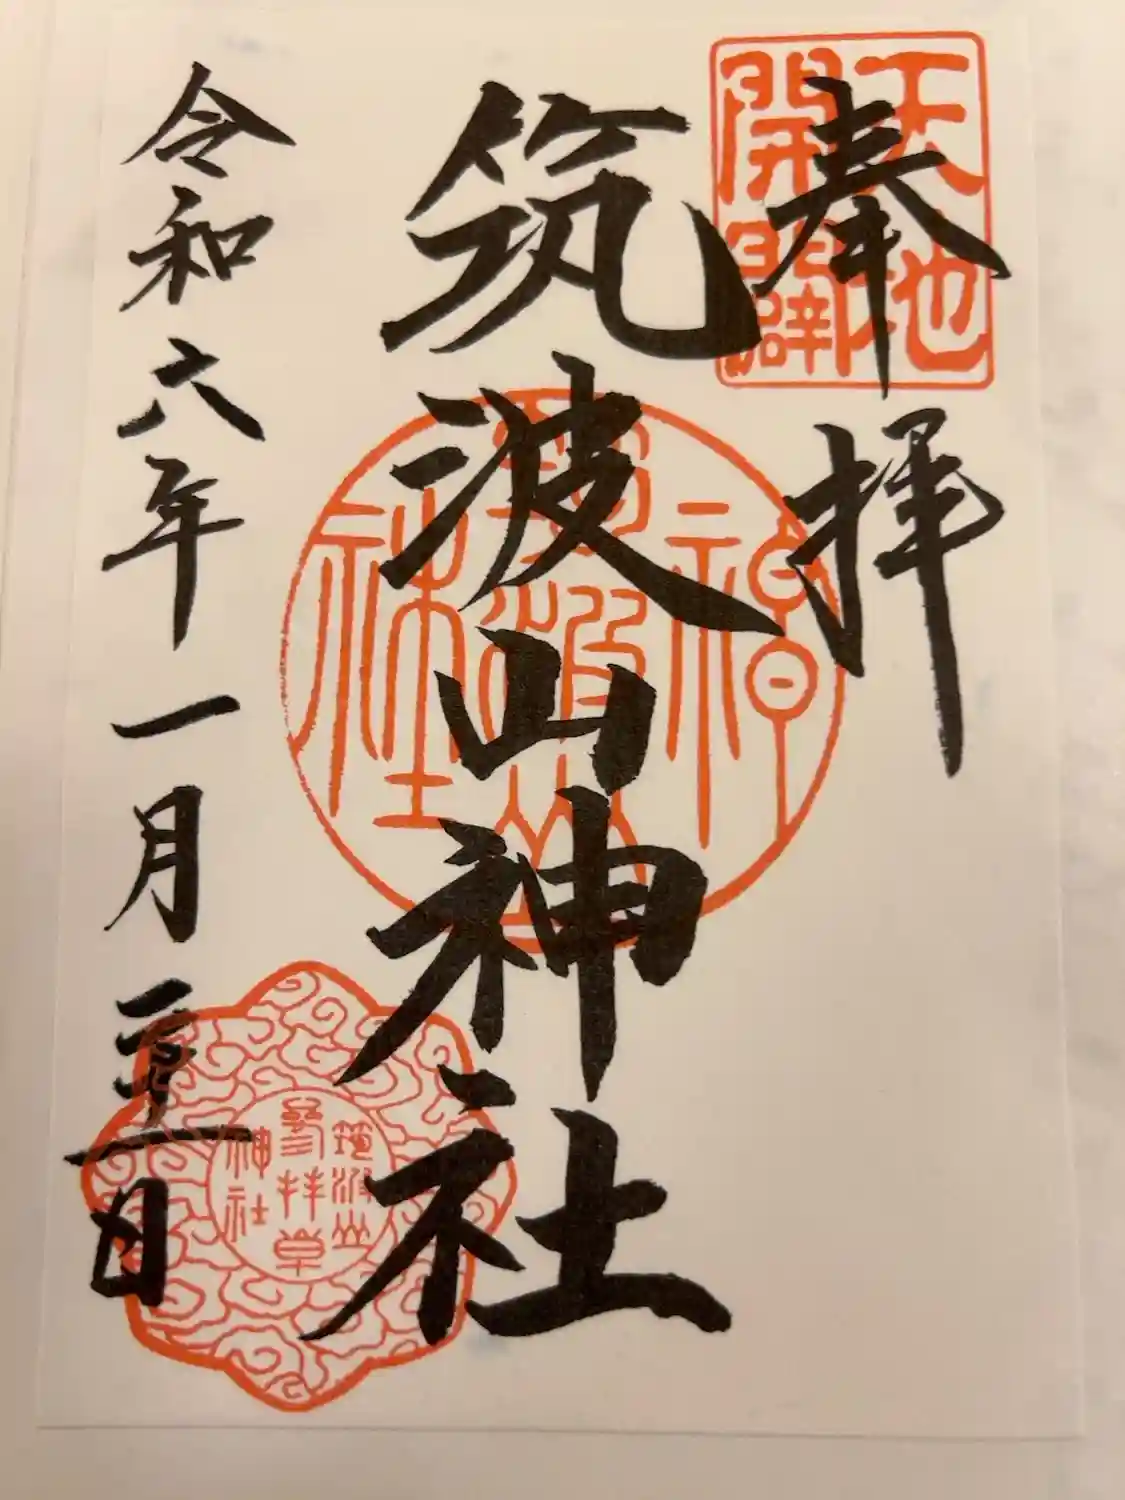 奉拝
天地
開闢
筑波山神社
神
筑波山
社
令和六年一月三日
筑波山
参拝章
神社